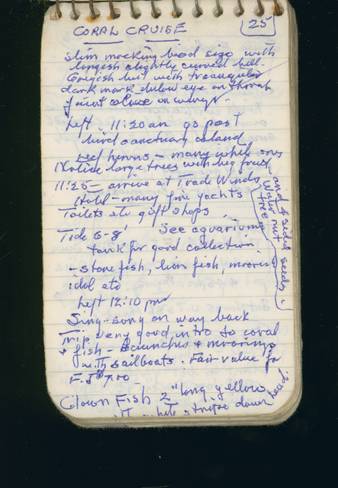 CORAL CRUISE
25
slim mocking bird size with
longish slightly curved bill.
Greyish but with triangular
dark mark below eye on throat
faint colour on wings.
Left 11:20 am go past
bird sanctuary island
Reef herons - many white ones
Notice large trees with big fruit
11:25 - arrive at Trade Winds
Hotel - many fine yachts
Toilets etc gift shops
Tide 6-8' See aquarium
tank for good collection
- stone fish, lion fish, moorish
idol etc
Left 12:10 pm
Sing-song on way back
Trip very good intro to coral
+ fish - launches + moorings
with sailboats. Fair value for
F.J $7.00
Clown Fish 2" long yellow
white stripe down head.
and 4 sided seeds
Water nut
tree